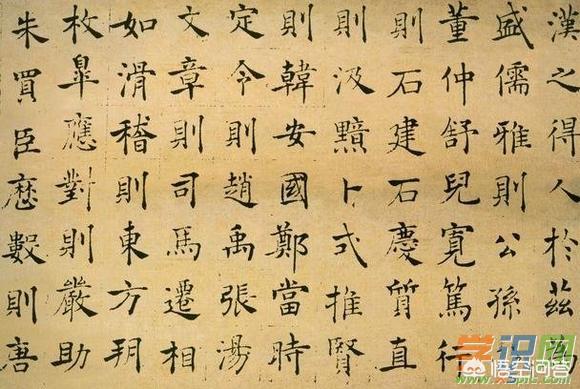 漢之得人於茲為
盛儒雅則公孫
董仲舒兒寬篤行
則石建石慶質直
則汲黯卜式推賢
則韓安國鄭當時
定令則趙禹張湯
文章則司馬遷相
如滑稽則東方朔
枚皐應對則嚴助
朱買臣厯數則唐
学识网
悟空问答